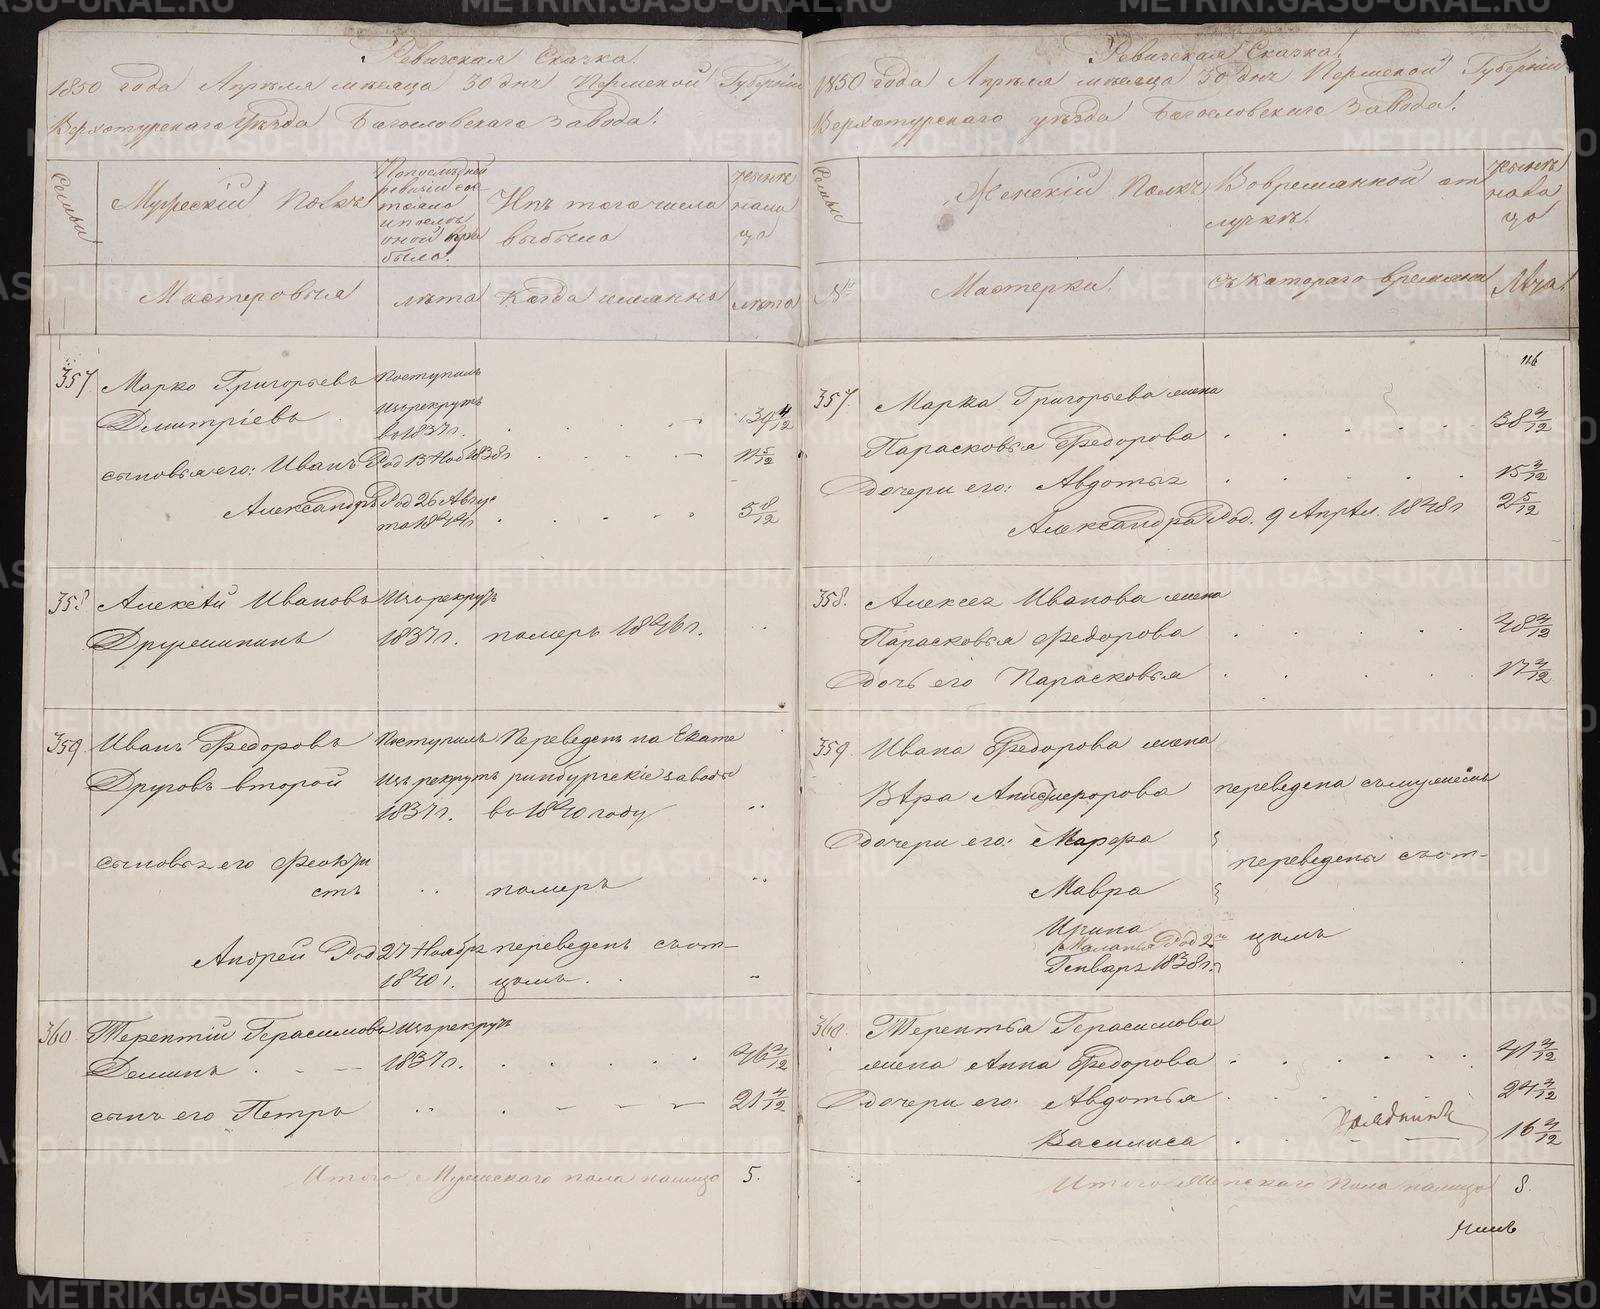 Ревизская Сказка.
1850 года Апреля месяца 30 дня Пермской Губернии
Верхотурскаго Уезда Богословскаго Завода.
Семьи
Мужеский Полъ
По последней ревизии состояло и после оной прибыло.
Изъ того числа выбыло
Ныне на лицо
Мастеровыя
лета
Когда именно
лета
357
Марко Григорьевъ
Дмитріевъ
Поступилъ
изъ рекрутъ
въ 1837 г.
39 4/12
сыновья его: Иванъ
Род 13 Нов 1838 г
11 5/12
Александръ
Род 26 Авгус
та 1844 г
5 8/12
358
Алексѣй Ивановъ
Дружининъ
Изъ рекрутъ
1837 г.
померъ 1846 г.
359
Иванъ Федоровъ
Друговъ второй
Поступилъ
изъ рекрутъ
1837 г.
Переведенъ на Екате
ринбургскіе заводы
въ 1840 году
сыновья его Феокти
стъ
померъ
Андрей
Род 27 Ноября
1840 г.
переведенъ съ от-
цомъ.
360
Терентій Герасимовъ
Деминъ
изъ рекрутъ
1837 г.
46 4/12
сынъ его Петръ
21 4/12
Итого Мужескаго пола налицо 5.
Ревизская Сказка.
1850 года Апреля месяца 30 дня Пермской Губернии
Верхотурскаго уезда Богословскаго Завода.
Семьи
Женский Полъ
Во временной от
лучке.
Ныне на ли
цо
№
Мастерки.
Съ котораго времени
Лѣта
116
357.
Марка Григорьева жена
Парасковья Федорова
38 4/12
Дочери его: Авдотья
15 4/12
Александра Род. 9 Апрѣл. 1848 г
2 5/12
358.
Алексея Иванова жена
Парасковья Федорова
48 4/12
Дочь его Парасковья
17 4/12
359
Ивана Федорова жена
Вѣра Никифорова
переведена съ мужемъ
Дочери его: Марфа
Мавра
Ирина
Маланья Род 2
Генваря 1838 г.
переведены съ от-
цомъ
360.
Терентья Герасимова
жена Анна Федорова
41 4/12
Дочери его: Авдотья
24 4/12
Василиса
16 4/12
Итого Женскаго Пола налицо 8.